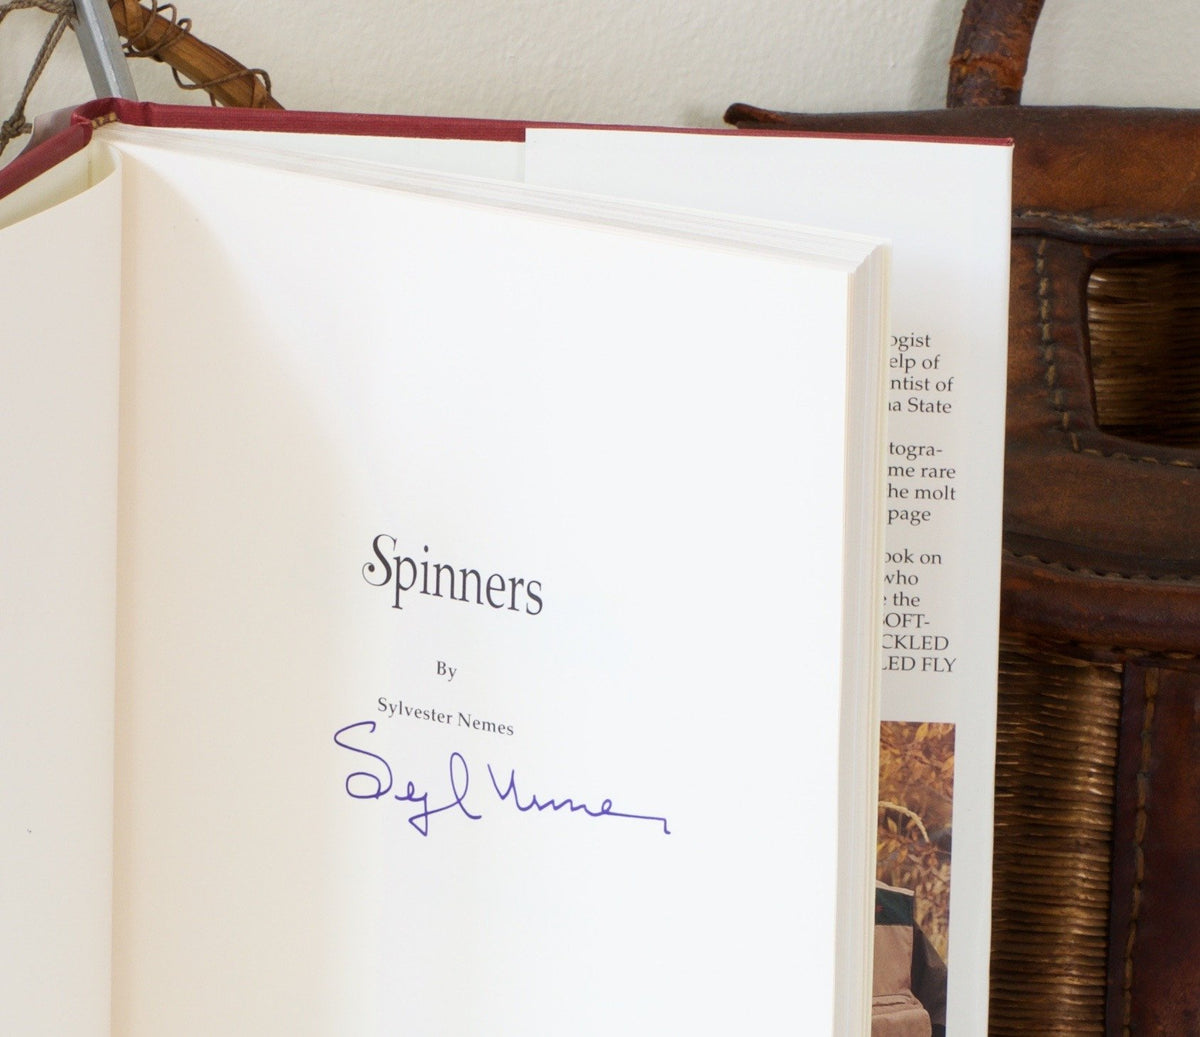 Spinners
By
Sylvester Nemes
Syl Nemes
ogist
elp of
ntist of
na State
togra-
me rare
he molt
page
ook on
who
e the
SOFT-
CKLED
LED FLY